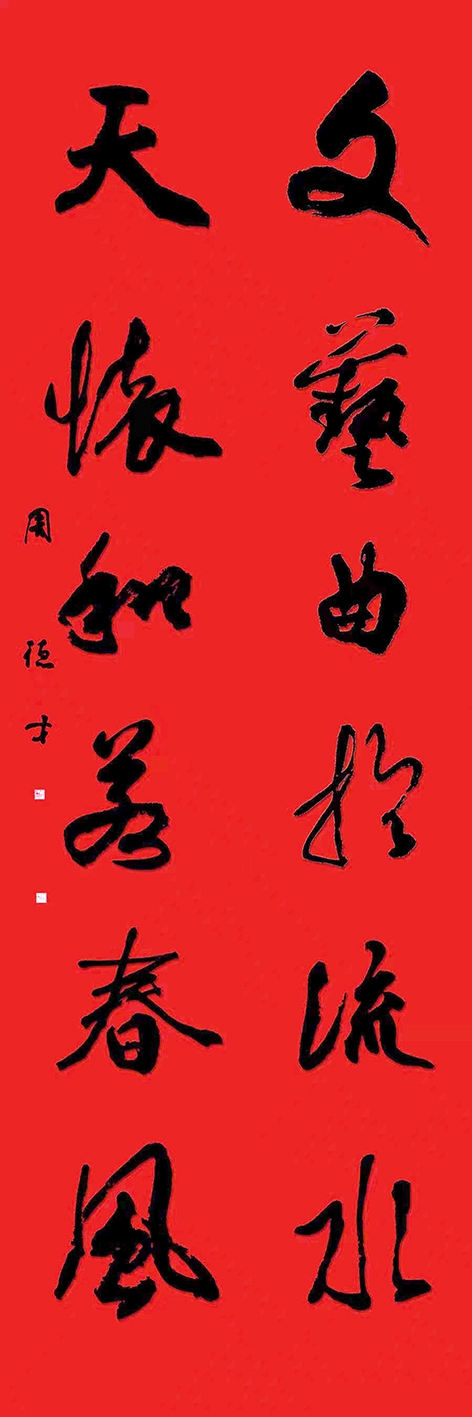 文藝曲於流水
天懷和若春風
周德才